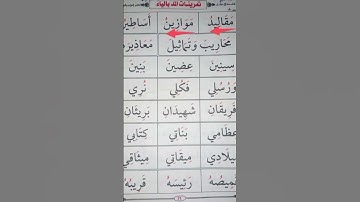 مَقَالِيدُ مَوَازِينُ أَسَاطِيرُ
مَحَارِيبَ وَتَمَاثِيلَ مَعَاذِيرَهُ
سِنِينَ عِضِينَ بَنِينَ
وَرُسُلِي فَكُلِي نُرِي
فَرِيقَانِ شَهِيدَانِ بَرِيئَانِ
عِظَامِي بَنَاتِي كِتَابِي
مِيلَادِي مِيقَاتِي مِيثَاقِي
قَمِيصُهُ رَئِيسُهُ قَرِيبُهُ